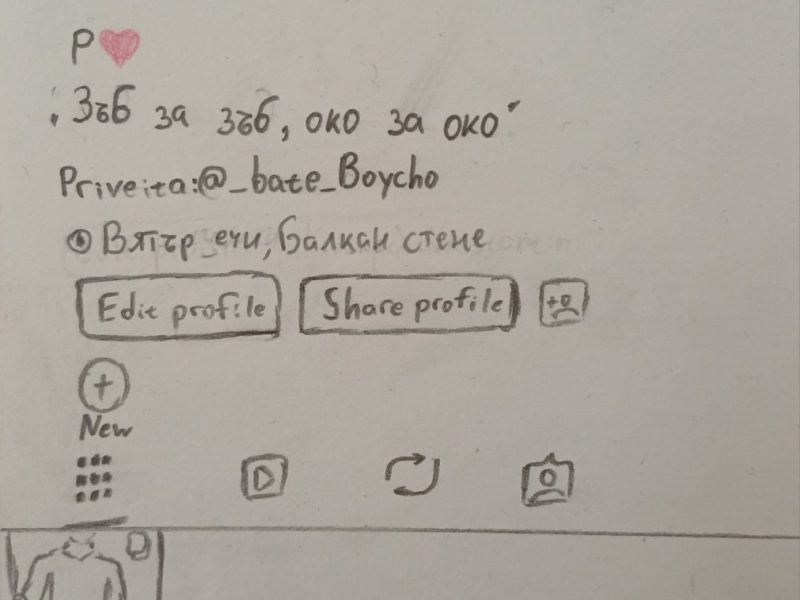 P
„Зъб за зъб, око за око“
Priveita:@_bate_Boycho
Вятър_ечи, Балкан стене
Edit profile Share profile
New